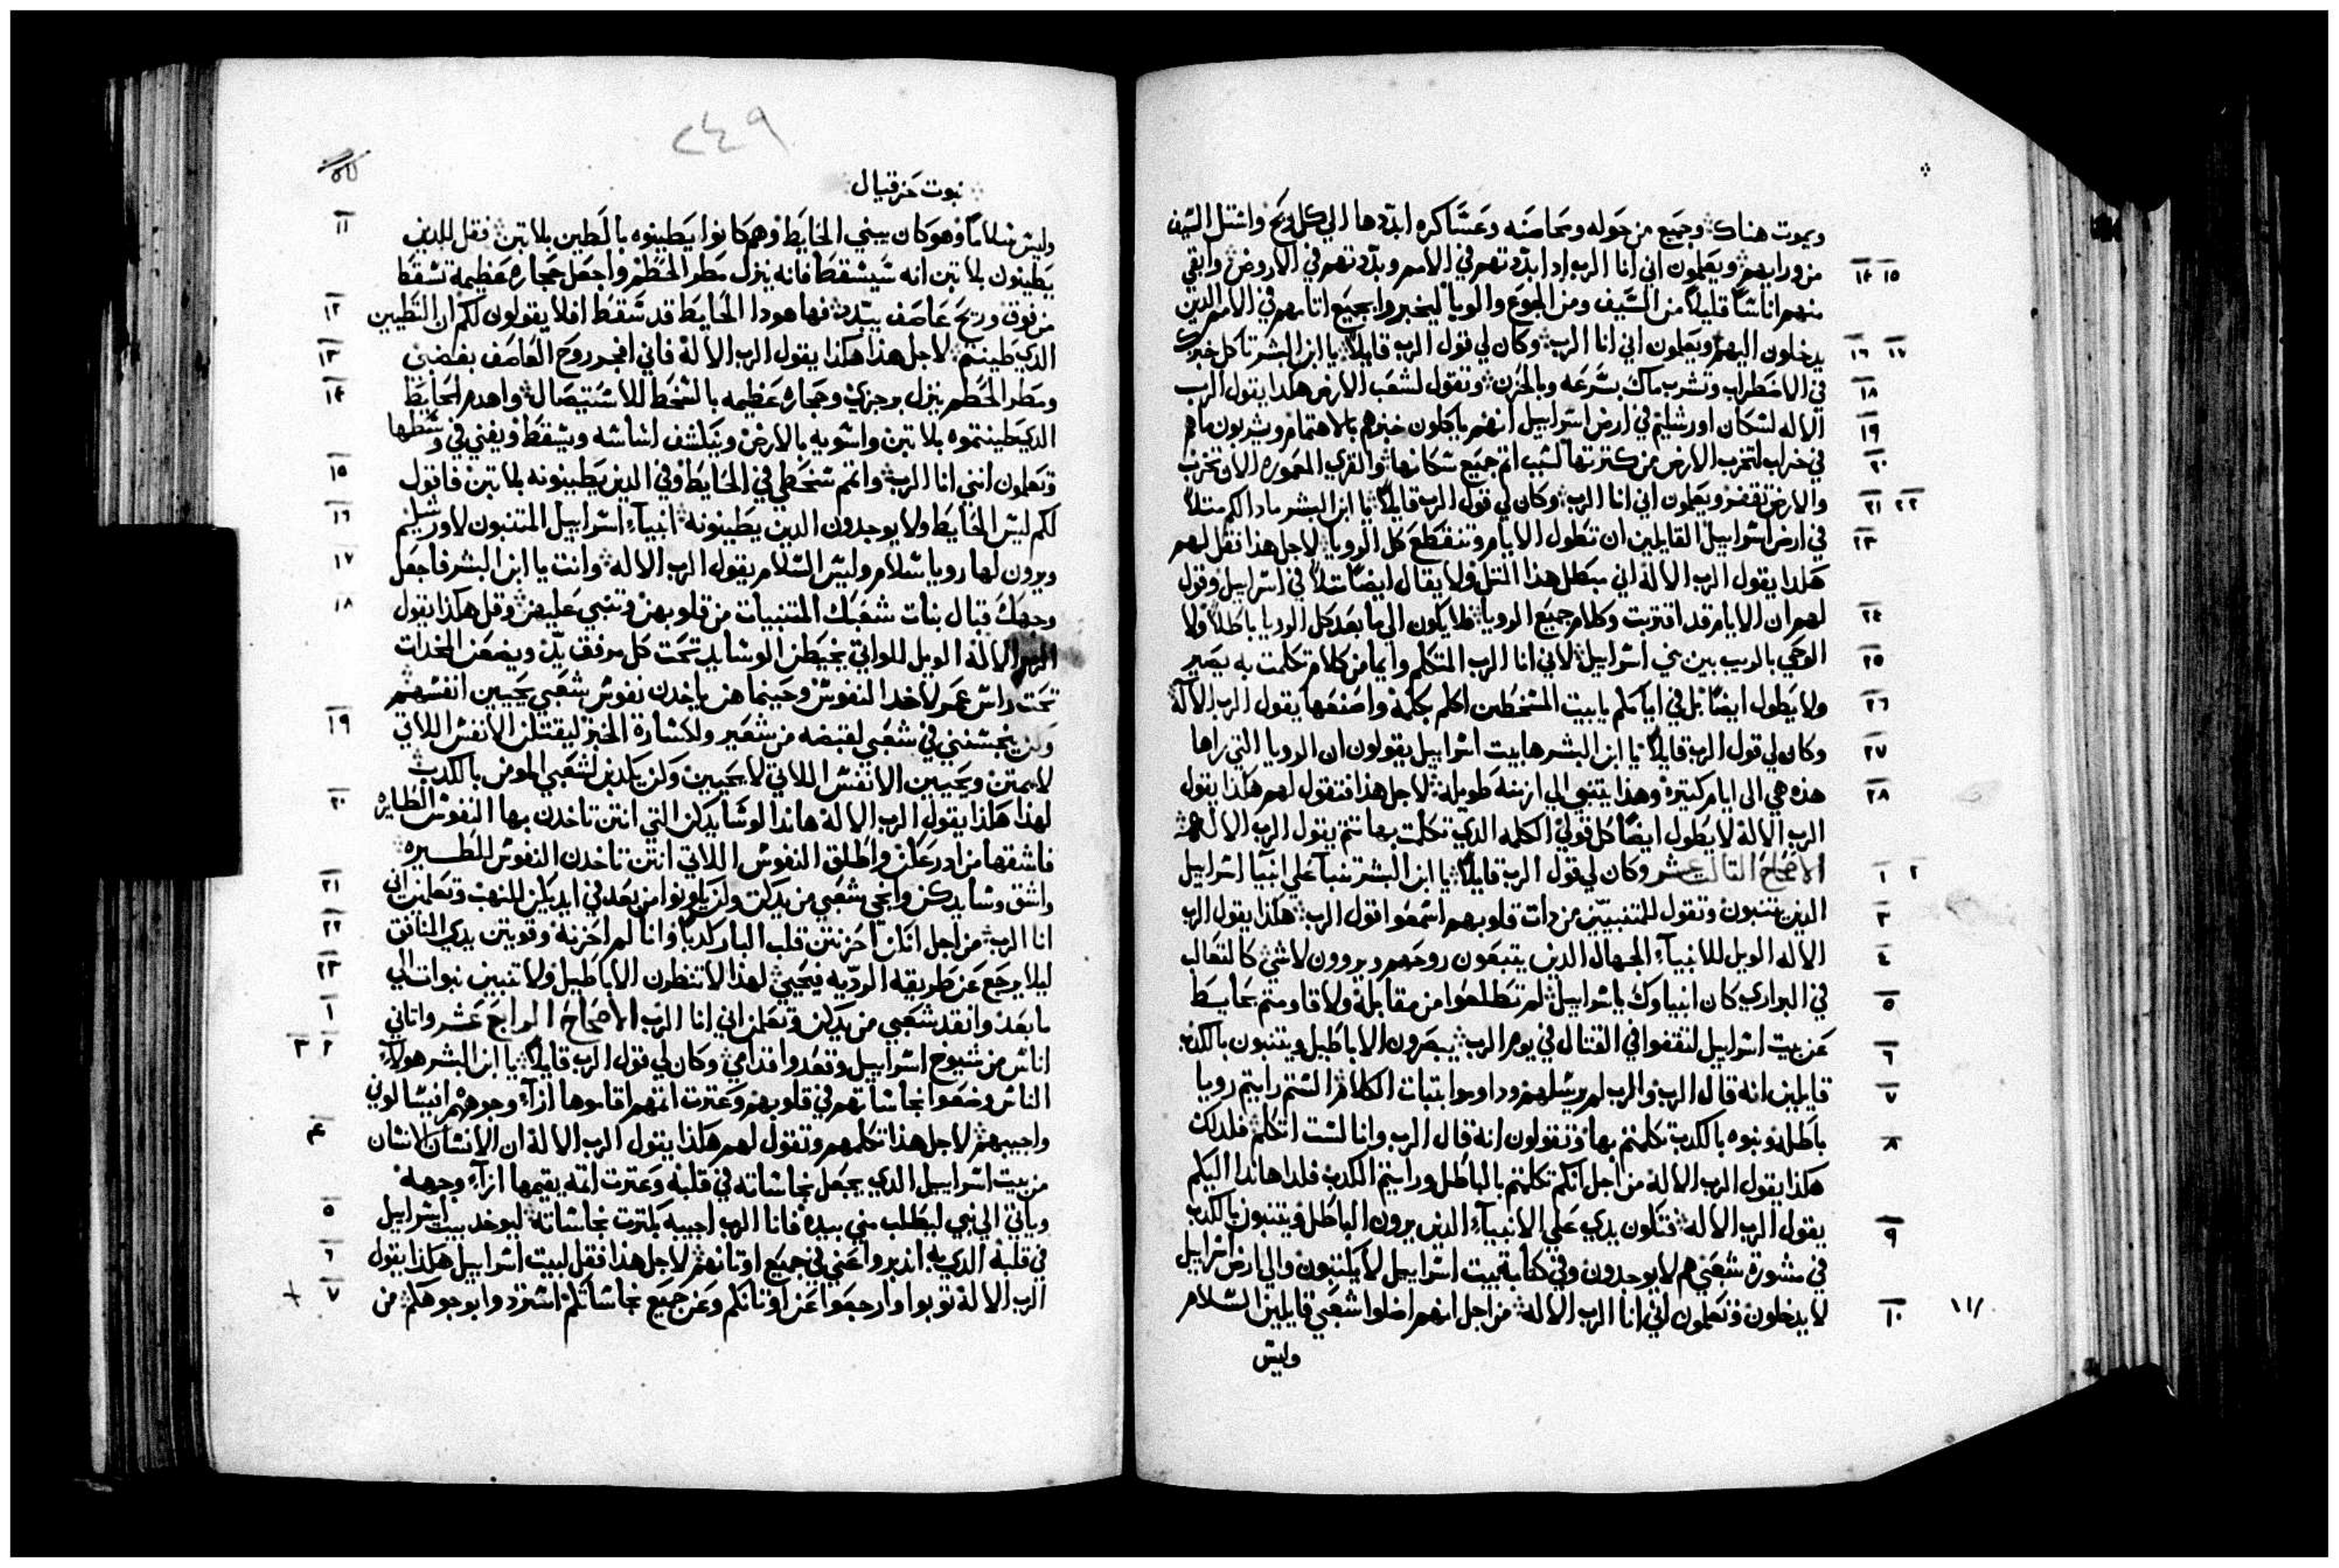 ويموت هناك وجميع من حوله ومحاصنه وعساكره ابددها الي كل ريح واستل السيف
١٥ ١٤ من ورايهم ويعلمون اني انا الرب ادا بددتهم في الامم وبدّدتهم في الاروض وابقي
منهم اناسًا قليلًا من السيف ومن الجوع والوبا ليخبروا بجميع اتامهم في الامم الدين
١٧ ١٦ يدخلون اليهم ويعلمون اني انا الرب وكان لي قول الرب قايلًا يا ابن البشر تاكل خبزك
١٨ في الاضطراب وتشرب ماك بسرعه وبالحزن وتقول لشعب الارض هكدا يقول الرب
١٩ الاله لسكان اورشليم في ارض اسراييل انهم ياكلون خبزهم بالاهتمام ويشربون ماهم
٢٠ في خراب لتخرب الارض من كترتها لسبب اتم جميع سكانها والقري المعموره الان تخرب
٢٢ ٢١ والارض تقفر ويعلمون اني انا الرب وكان لي قول الرب قايلًا يا ابن البشر مادا لكم متلًا
٢٣ في ارض اسراييل القايلين ان تطول الايام وتنقطع كل الرويا لاجل هذا فقل لهم
هكدا يقول الرب الاله اني مبطل هذا المتل ولا يقال ايضًا متلًا في اسراييل وقول
٢٤ لهم ان الايام قد اقتربت وكلام جميع الرويا فلا يكون الي ما بعد كل الرويا باطلًا ولا
٢٥ الوحي بالريب بين بني اسراييل لاني انا الرب المتكلم وايما من كلام تكلمت به يصير
٢٦ ولا يطول ايضًا بل في ايامكم يا بيت المسخطين اكلم بكلمة واصنعها يقول الرب الاله
٢٧ وكان لي قول الرب قايلًا يا ابن البشر ها بيت اسراييل يقولون ان الرويا التي راها
٢٨ هذه هي الى ايام كتيرة وهذا يتنبي الي ازمنة طويلة لاجل هذا فتقول لهم هكذا يقول
الرب الاله لا يطول ايضًا كل قولي الكلمه الدي تكلمت بها تتم يقول الرب الاله
٢ ١ الاصحاح التالت عشر وكان لي قول الرب قايلًا يا ابن البشر تنبأ علي انبيا اسراييل
٣ الدين يتنبون وتقول للمتنبيين من دات قلوبهم اسمعوا قول الرب هكذا يقول الرب
٤ الاله الويل للانبيآء الجهال الدين يتبعون روحهم ويروون لاشي كالتعالب
٥ في البراري كان انبياوك يا اسراييل لم تطلعوا من مقابلة ولا قاومتم بحايط
٦ عن بيت اسراييل لتقفوا في القتال في يوم الرب يبصرون الاباطيل ويتنبون بالكدب
٧ قايلين انه قال الرب والرب لم يرسلهم وداوموا بتبات الكلام الستم رايتم رويا
٨ باطلة ونبوه بالكدب تكلمتم بها وتقولون انه قال الرب وانا لست اتكلم فلدلك
هكذا يقول الرب الاله من اجل انكم تكلمتم بالباطل ورايتم الكدب فلدا هاندا اليكم
٩ يقول الرب الاله فتكون يدي علي الانبيآء الدين يرون الباطل ويتنبون بالكدب
في مشورة شعبي هم لا يوجدون وفي كتابة بيت اسراييل لا يكتبون والي ارض اسراييل
١٠ لا يدخلون وتعلمون اني انا الرب الاله من اجل انهم اضلوا شعبي قايلين السلام
وليس
٢٤٩
نبوت حزقيال
١١ وليس سلامًا وهو كان يبني الحايط وهم كانوا يطينوه بالطين بلا تبن فقل للدين
يطينون بلا تبن انه سيسقط فانه ينزل مطر الحطم واجعل حجاره عظيمة تسقط
١٢ من فوق وريح عاصف يبدد فها هودا الحايط قد سقط افلا يقولون لكم ان التطيين
١٣ الدي طينتم لاجل هذا هكذا يقول الرب الاله فاني افجر روح العاصف بغضبي
١٤ ومطر الحطم ينزل برجزي وحجاره عظيمه بالسخط للاستيصال واهدم الحايط
الدي طينتموه بلا تبن واسويه بالارض ويتكشف اساسه ويسقط ويفني في وسطها
١٥ وتعلمون انني انا الرب واتمم سخطي في الحايط وفي الدين يطينونه بلا تبن فاقول
١٦ لكم ليس الحايط ولا يوجدون الدين يطينونه انبيآء اسراييل المتنبون لاورشليم
١٧ ويرون لها رويا سلام وليس السلام يقول الرب الاله وانت يا ابن البشر فاجعل
١٨ وجهك قبال بنات شعبك المتنبيات من قلوبهن وتنبي عليهن وقل هكذا يقول
الرب الاله الويل للواتي يخيطن الوسايد تحت كل مرفق يدّ ويضعن المخدات
تحت راس عمر لاخد النفوس وحينما هن ياخدن نفوس شعبي يحيين انفسهم
١٩ وكن ينجسنني في شعبي لقبضه من شعير ولكسارة الخبز ليقتلن الانفس اللاتي
لا يمتن ويحيين الانفس اللاتي لا يحيين وكن يكدبن لشعبي المومن بالكدب
٢٠ لهذا هكذا يقول الرب الاله هاندا لوسايدكن التي انتن تاخدن بها النفوس الطايره
فاشقها من ادرعكن واطلق النفوس اللاتي انتن تاخدن النفوس للطــيره
٢١ واشق وسايدكن وانجي شعبي من يدكن ولن يكونوا من بعد في ايديكن للنهب وتعلمن اني
٢٢ انا الرب من اجل انكن احزنتن قلب البار كدبًا وانا لم احزنه وقويتن يدي المنافق
٢٣ ليلا يرجع عن طريقه الرديه فيحيي لهذا لا تنظرن الاباطيل ولا تتنبين نبوات الي
١ ما بعد وانقد شعبي من يدكن وتعلمن اني انا الرب الاصحاح الرابع عشر واتاني
٢ ٣ اناس من شيوخ اسراييل وقعدوا قدامي وكان لي قول الرب قايلًا يا ابن البشر هولآء
الناس وضعوا نجاساتهم في قلوبهم وعترت اتمهم اقاموها ازآء وجوههم افيسالوني
٤ واجيبهم لاجل هذا تكلمهم وتقول لهم هكذا يقول الرب الاله ان الانسان الانسان
من بيت اسراييل الدي يجعل نجاساته في قلبه وعترت اتمه يقيمها ازآء وجهه
٥ وياتي الي نبي ليطلب مني بيده فانا الرب اجيبه بكترت نجاساته ليوخد بيت اسراييل
٦ في قلبه الدي به ادبروا عني في جميع اوتانهم لاجل هذا فقل لبيت اسراييل هكذا يقول
٧ الرب الاله توبوا وارجعوا عن اوتانكم وعن جميع نجاساتكم استردوا بوجوهكم من